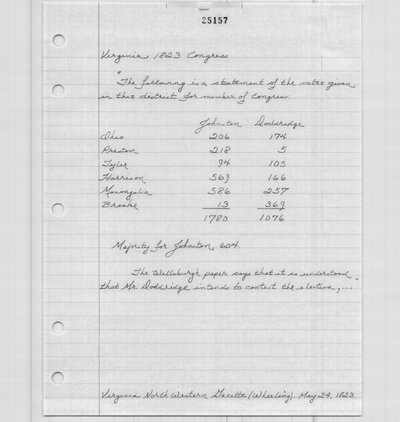 25157
Virginia 1823 Congress
"The following is a statement of the votes given
in this district for member of Congress:
Johnston Doddridge
Ohio 206 174
Preston 218 5
Tyler 94 105
Harrison 569 166
Monongalia 586 257
Brooke 13 369
1780 1076
Majority for Johnston, 604.
The Wellsburgh paper says that it is understood
that Mr. Doddridge intends to contest the election, ....
Virginia North Western Gazette (Wheeling). May 24, 1823